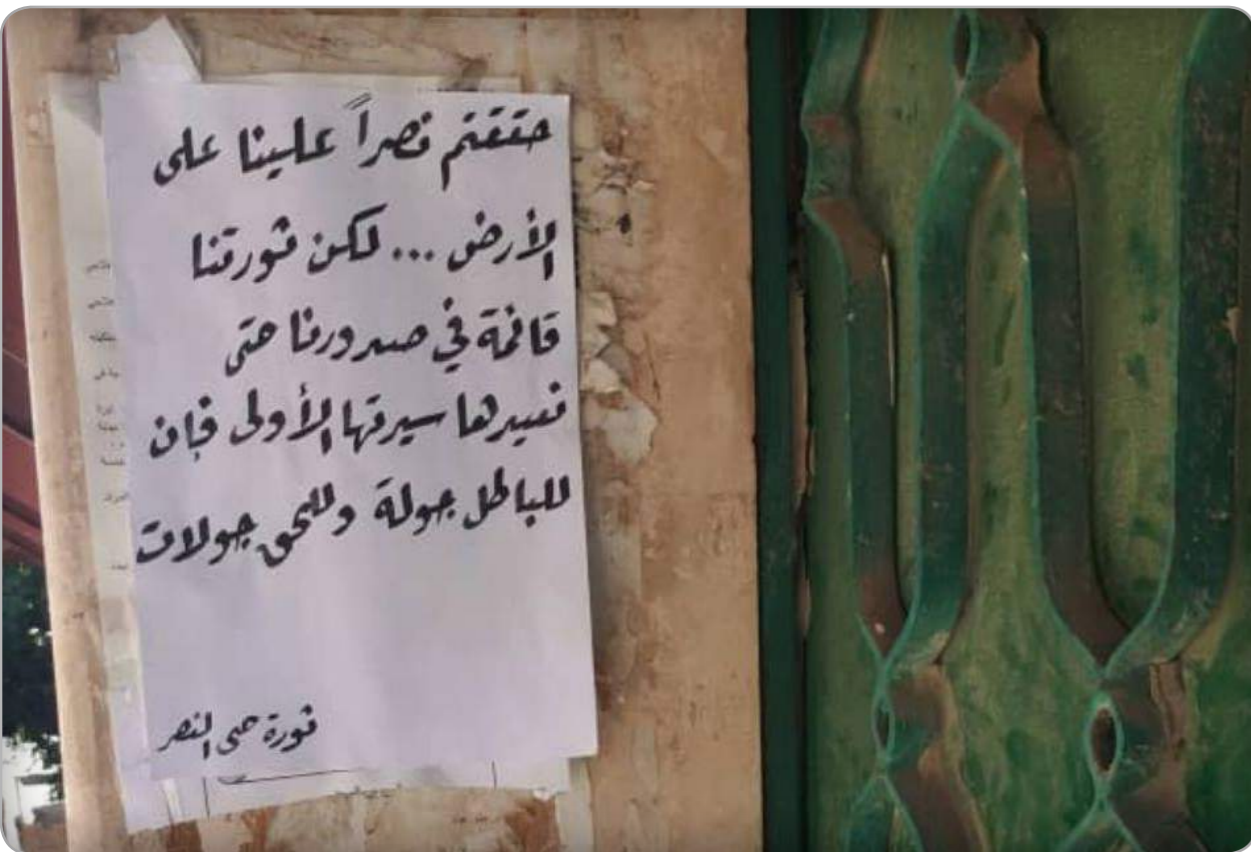 حققتم نصراً علينا على
الأرض ... لكن ثورتنا
قائمة في صدورنا حتى
نعيدها سيرتها الأولى فإن
للباطل جولة وللحق جولات
ثورة حتى النصر